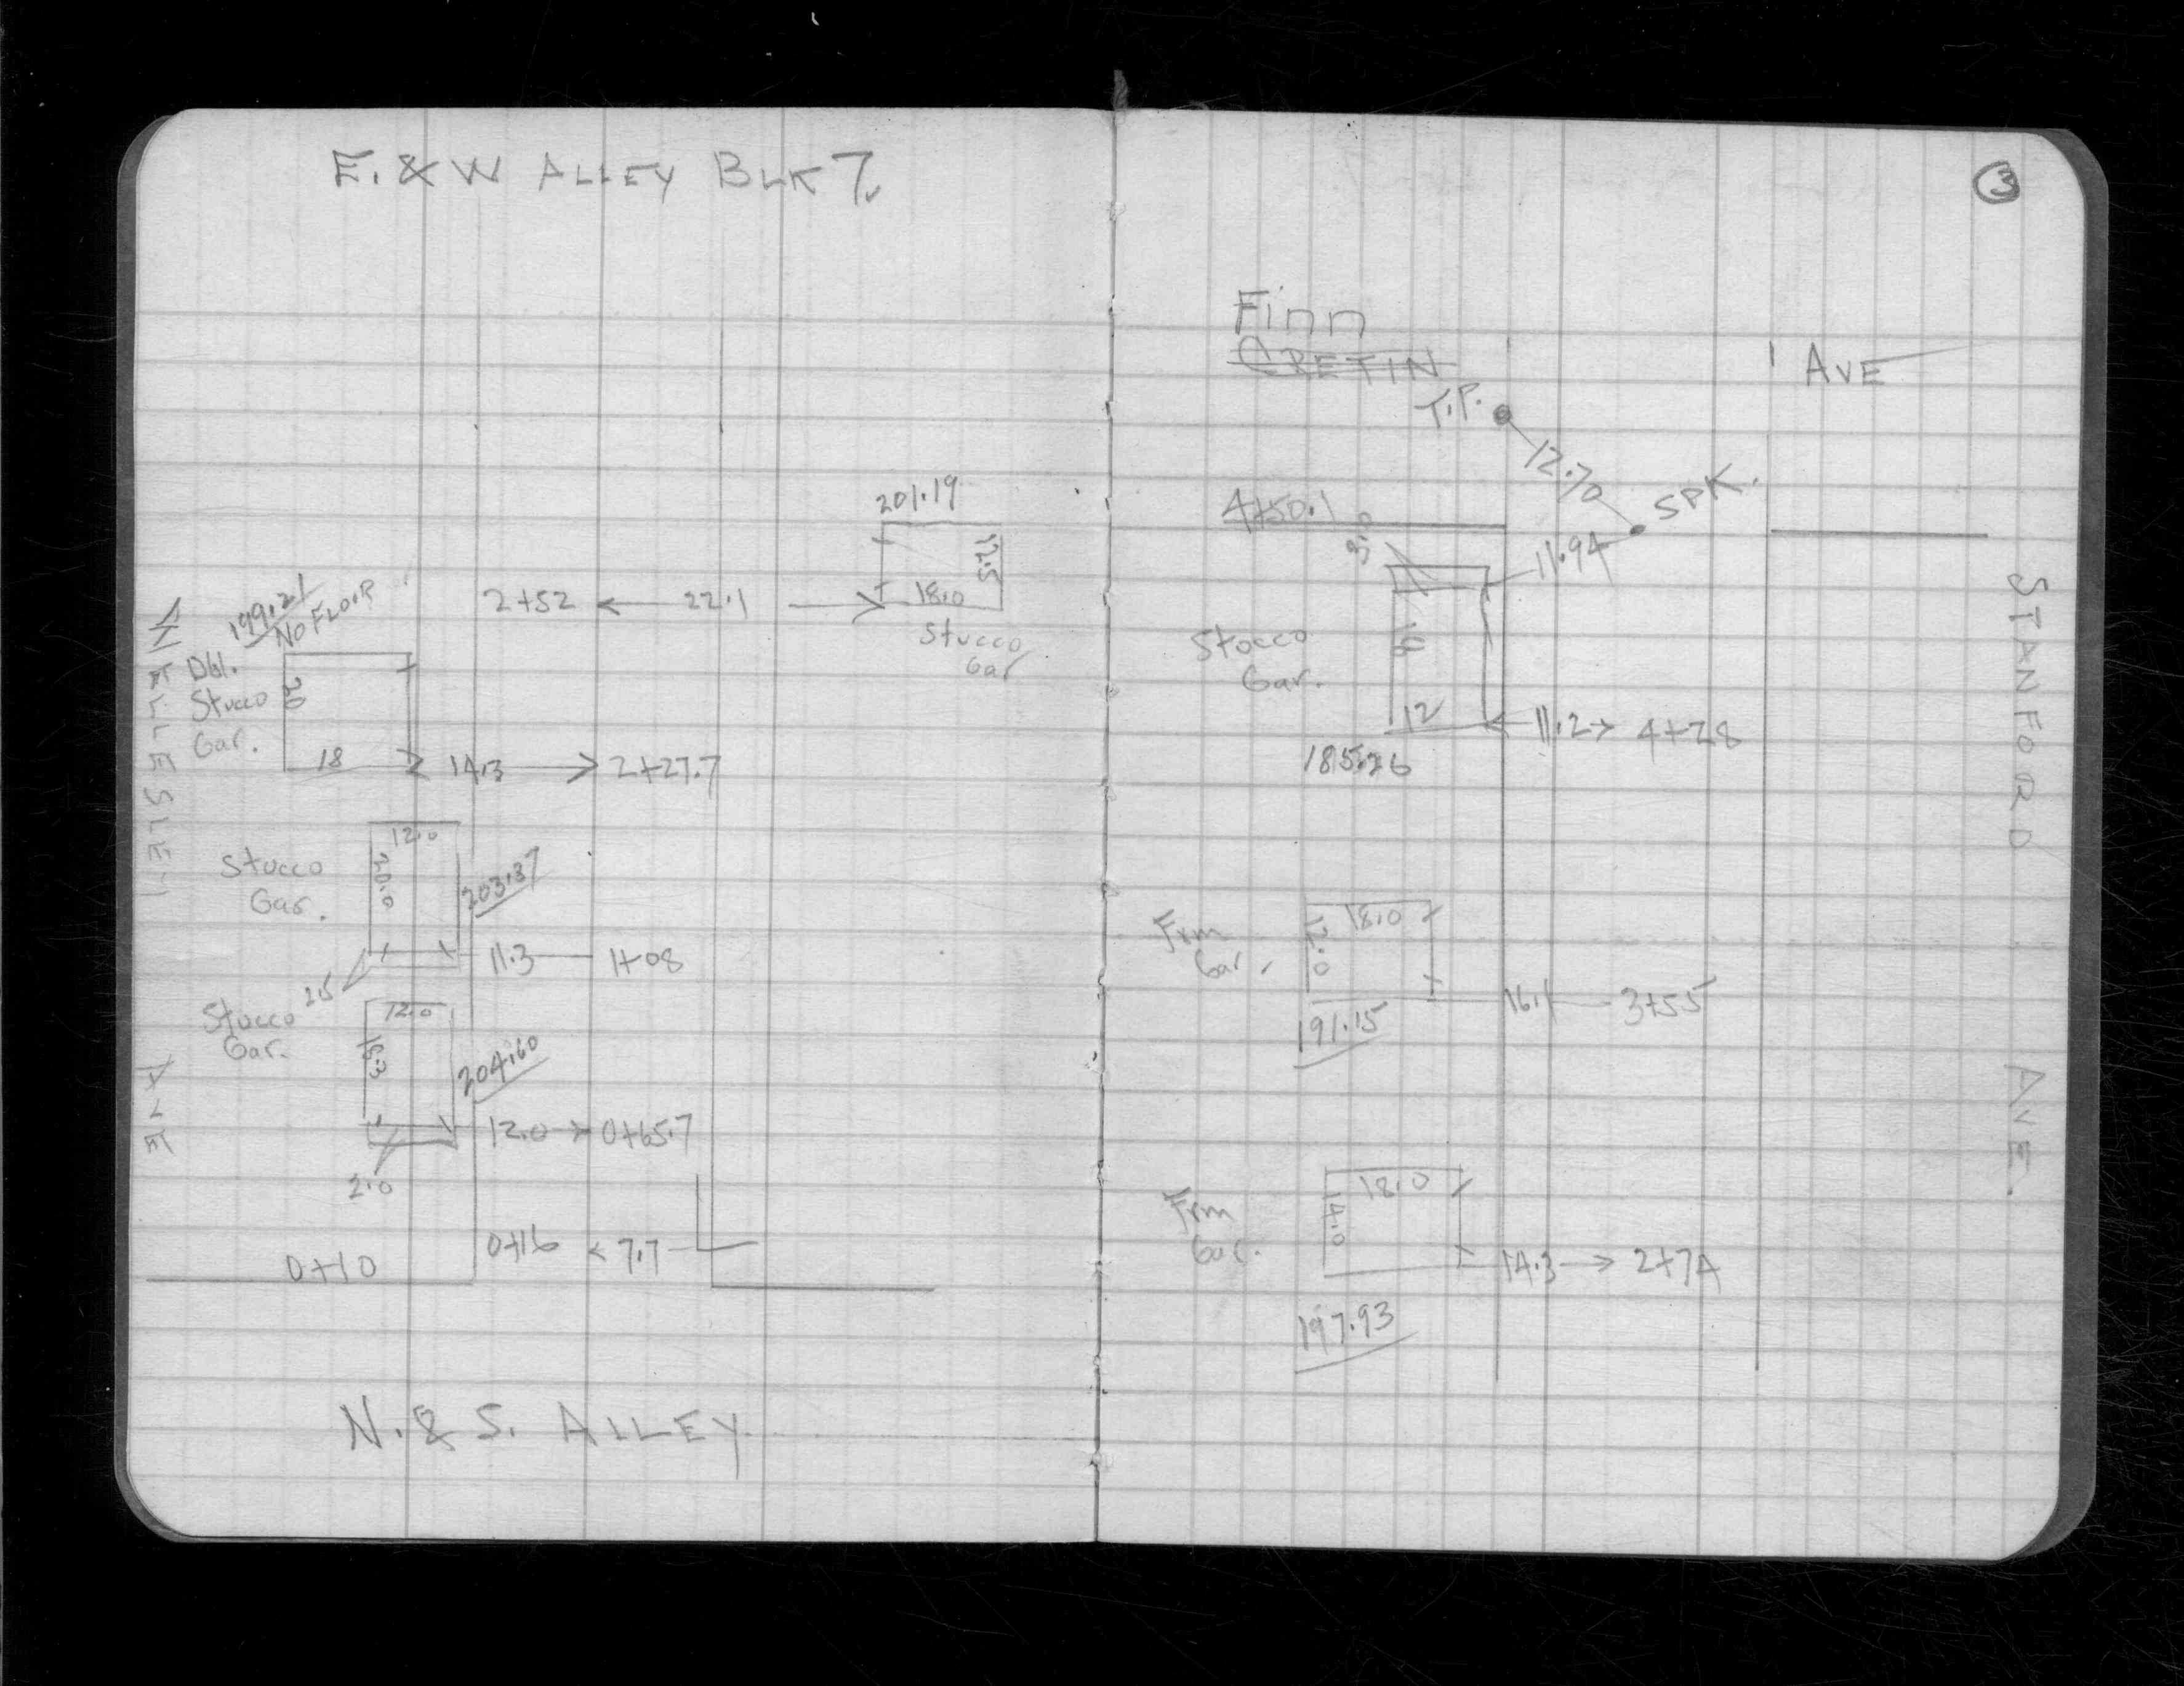 E. & W ALLEY BLK 7.
201.19
12.5
18.0
2+52 22.1
Stucco
Gar
199.21
NO FLOOR
Dbl.
Stucco
Gar.
20
18
14.3 2+27.7
12.0
20.0
Stucco
Gar.
203.37
11.3 1+08
2.5
Stucco
Gar.
12.0
18.3
204.60
12.0 0+65.7
2.0
0+16 7.7
0+10
N. & S. ALLEY
AVE
3
Finn
CRETIN
AVE
T.P.
12.70
SPK.
4+50.1
3.0
11.94
Stucco
Gar.
12
11.2 4+28
185.26
Frm
Gar.
18.0
12.0
16.1 3+55
191.15
Frm
Gar.
18.0
14.0
14.3 2+74
197.93
STANFORD AVE.